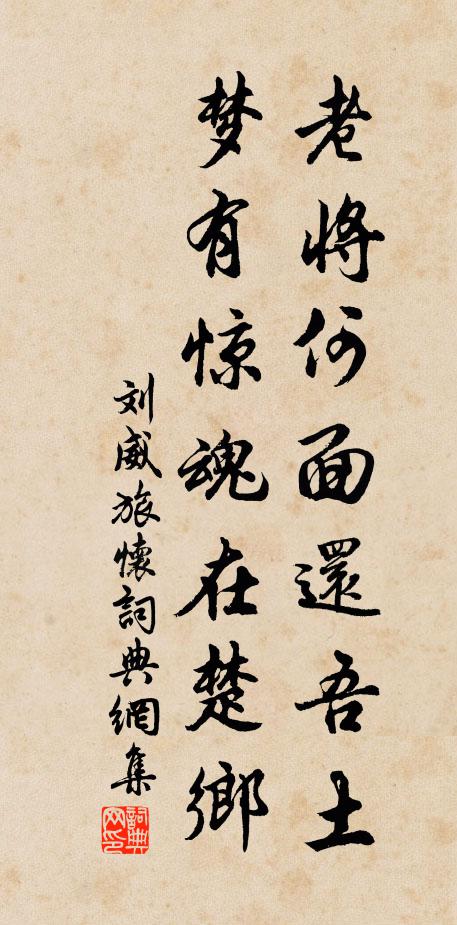 老將何面還吾土
梦有惊魂在楚鄉
刘威旅懷詞典網集
詞典网印